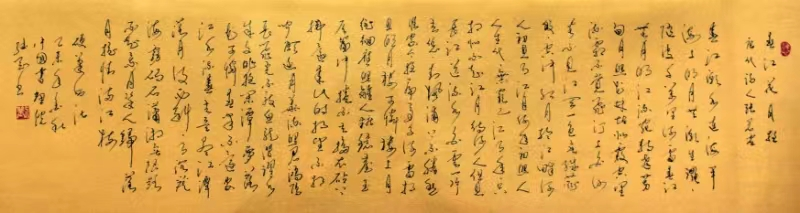 春江花月夜
唐代诗人张若虚
春江潮水连海平
海上明月共潮生滟
滟随波千万里何处春江
无月明江流宛转绕芳
甸月照花林皆似霰空里
流霜不觉飞汀上白沙
看不见江天一色无纤尘
皎皎空中孤月轮江畔何
人初见月江月何年初照人
人生代代无穷已江月年年
只相似不知江月待何人但见
长江送流水白云一片
去悠悠青枫浦上不胜愁
谁家今夜扁舟子何处相
思明月楼可怜楼上月
徘徊应照离人妆镜台玉
户帘中卷不去捣衣砧上
拂还来此时相望不相
闻愿逐月华流照君鸿雁
长飞光不度鱼龙潜跃水
成文昨夜闲潭梦落
花可怜春半不还家
江水流春去欲尽江潭
落月复西斜斜月沉沉
藏海雾碣石潇湘无限路
不知乘月几人归落
月摇情满江树
乙未年
中国书画院